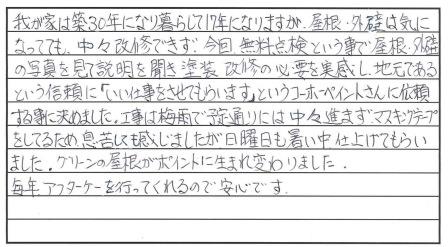 我が家は築30年になり暮らして17年になりますが、屋根・外壁は気に
なっても、中々改修できず、今回無料点検という事で屋根・外壁
の写真を見て説明を聞き塗装、改修の必要を実感し、地元である
という信頼に「いい仕事をさせてもらいます」というユーホーペイントさんに依頼
する事に決めました。工事は梅雨で予定通りには中々進まずマスキングテープ
をしてるため、息苦しくも感じましたが日曜日も暑い中仕上げてもらい
ました。グリーンの屋根がポイントに生まれ変わりました。
毎年アフターケーを行ってくれるので安心です。